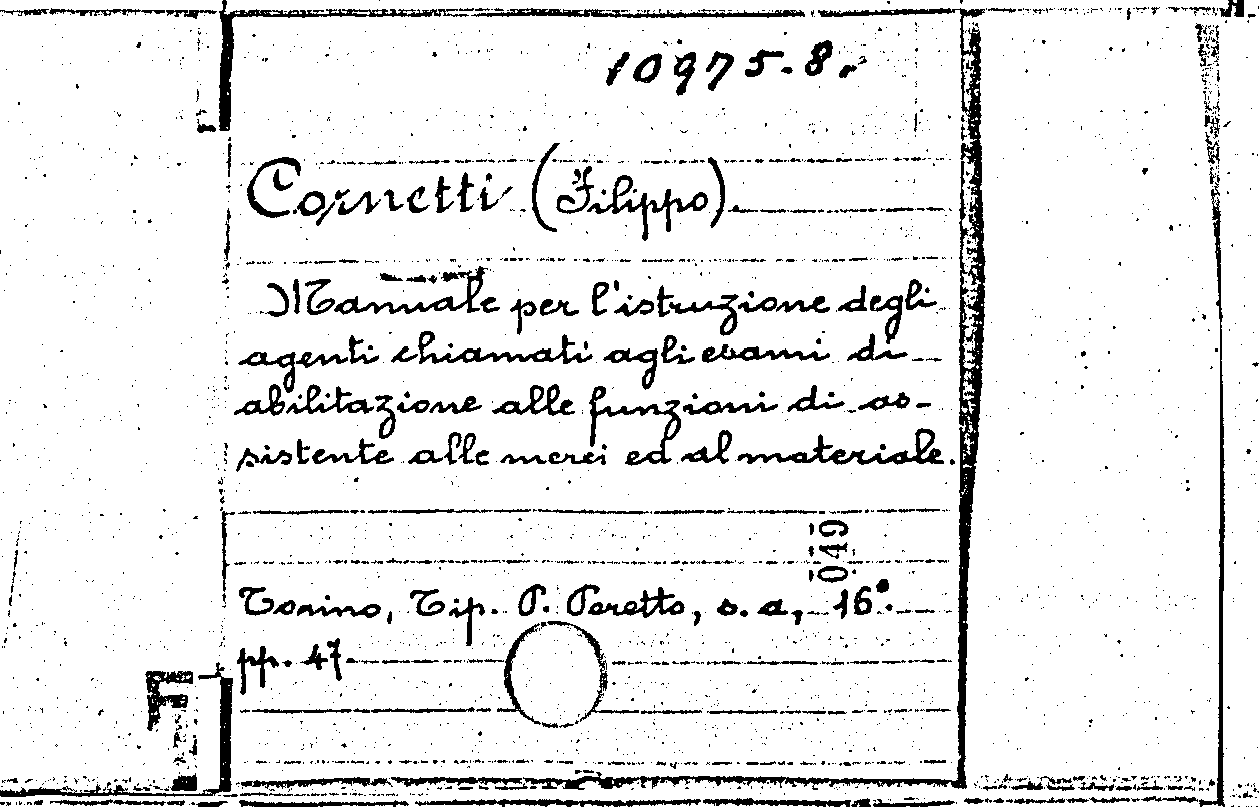 10975.8.
Cornetti (Filippo).
Manuale per l'istruzione degli
agenti chiamati agli esami di
abilitazione alle funzioni di as-
sistente alle merci ed al materiale.
049
Torino, Tip. P. Peretto, s. a, 16°.
pp. 47.